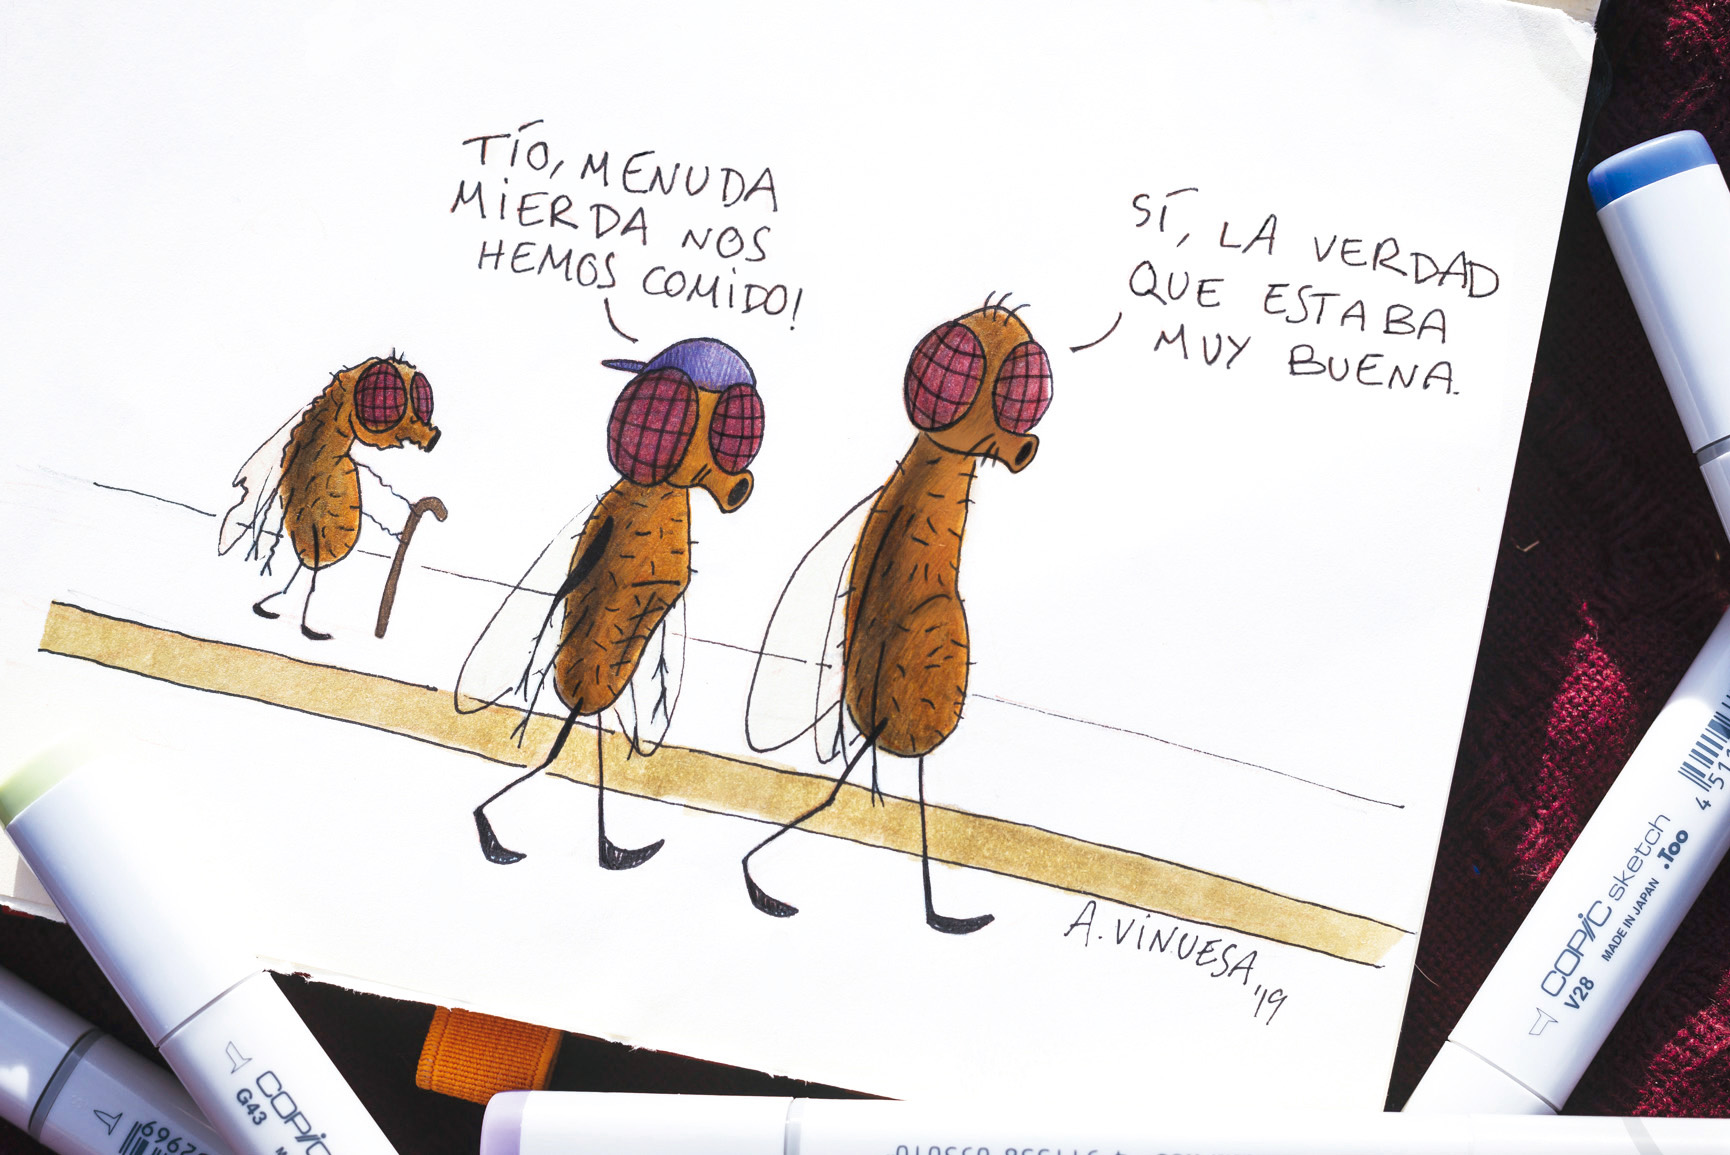 TÍO, MENUDA
MIERDA NOS
HEMOS COMIDO!
SÍ, LA VERDAD
QUE ESTABA
MUY BUENA.
A. VINUESA
'19
COPIC sketch
V28
MADE IN JAPAN
.Too
COPIC
G43